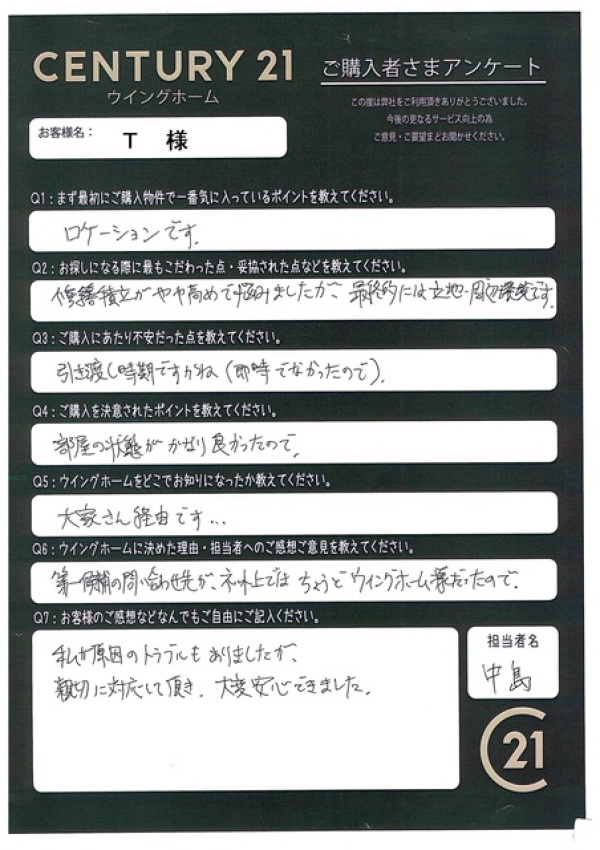 CENTURY 21
ウイングホーム
ご購入者さまアンケート
この度は弊社をご利用頂きありがとうございました。
今後の更なるサービス向上の為
ご意見・ご要望をお聞かせください。
お客様名： T 様
Q1：まず最初にご購入物件で一番気に入っているポイントを教えてください。
ロケーションです。
Q2：お探しになる際に最もこだわった点・妥協された点などを教えてください。
修繕積立がやや高めで悩みましたが、最終的には立地・周辺環境です。
Q3：ご購入にあたり不安だった点を教えてください。
引き渡し時期ですかね（即時でなかったので）。
Q4：ご購入を決意されたポイントを教えてください。
部屋の状態がかなり良かったので。
Q5：ウイングホームをどこでお知りになったか教えてください。
大家さん経由です...
Q6：ウイングホームに決めた理由・担当者へのご感想ご意見を教えてください。
第一候補の問い合わせ先が、ネット上ではちょうどウイングホーム様だったので。
Q7：お客様のご感想などなんでもご自由にご記入ください。
私が原因のトラブルもありましたが、
親切に対応して頂き、大変安心できました。
担当者名
中島
C21